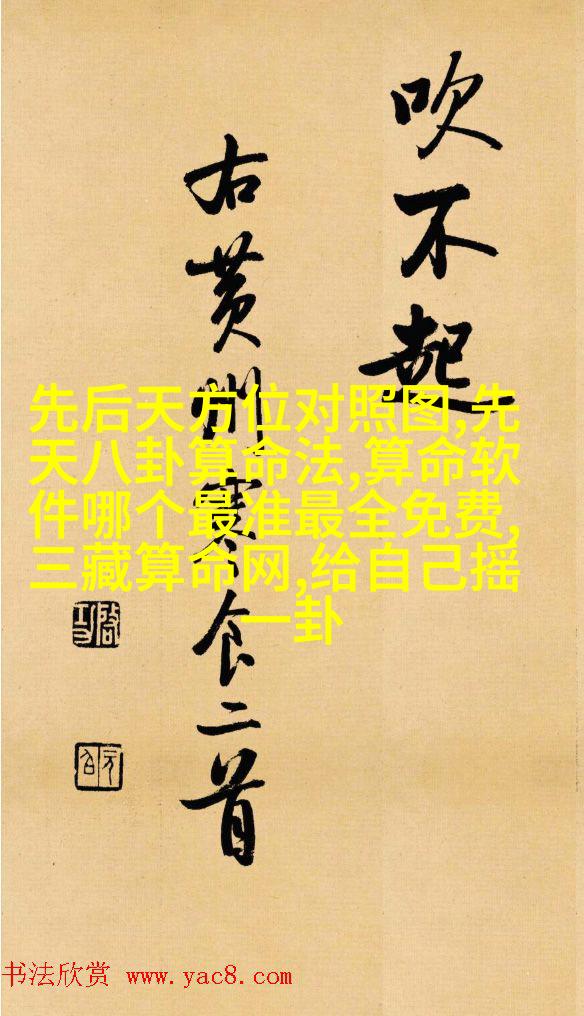 吹不起
右黄州寒食二首
先后天方位对照图,先
天八卦算命法,算命软
件哪个最准最全免费,
三藏算命网,给自己摇
一卦
启功
元白
书法欣赏 www.yac8.com